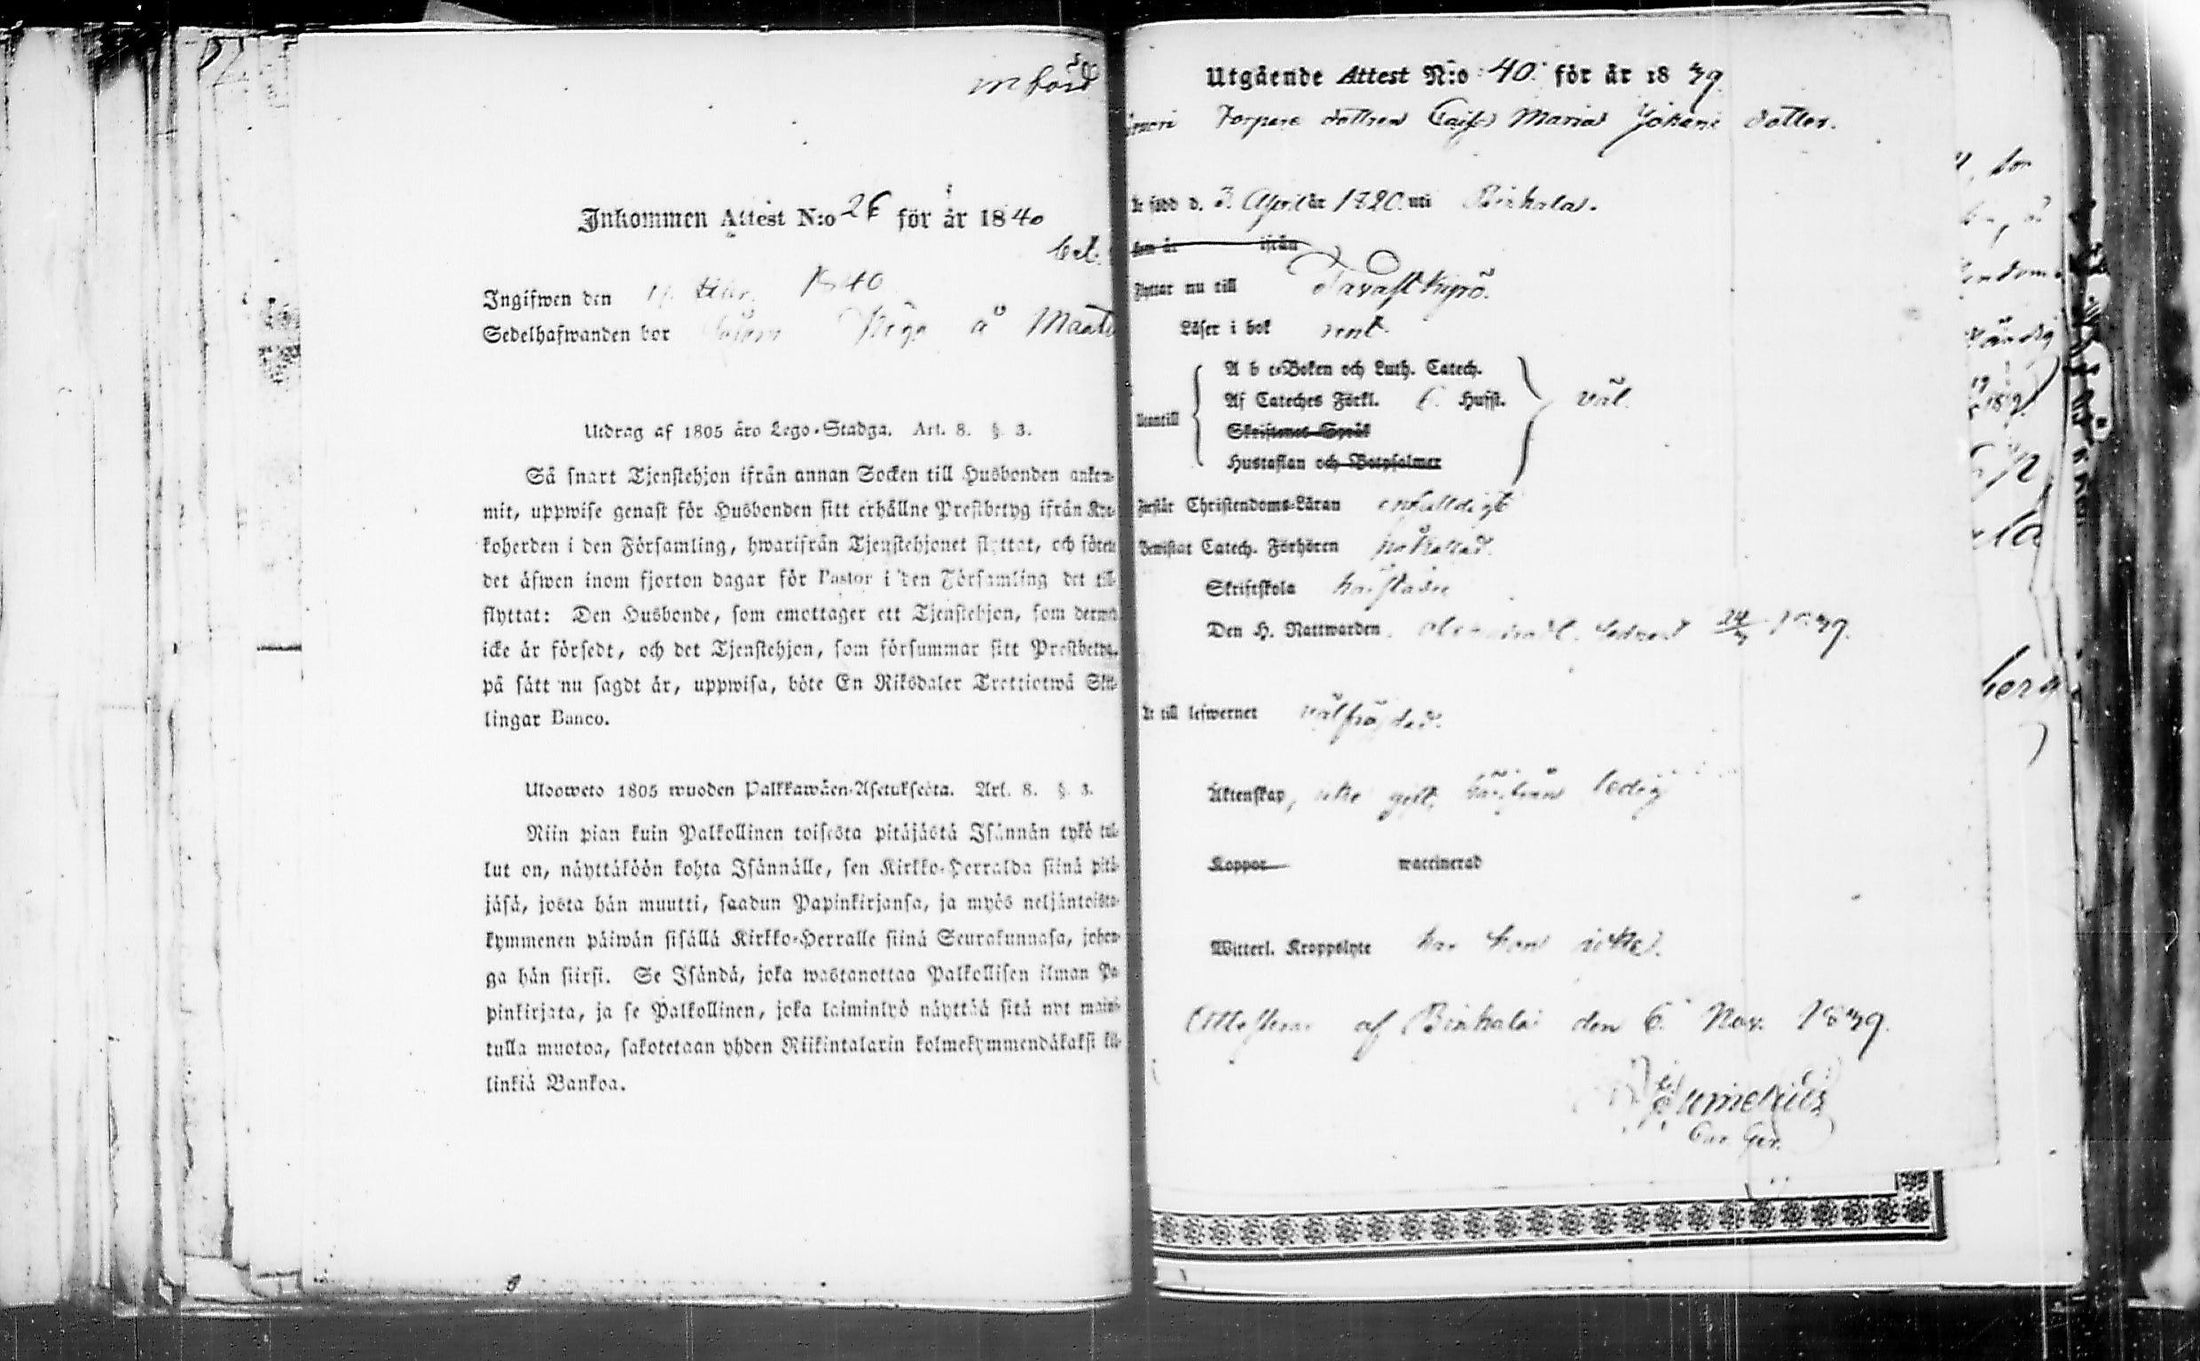 Inkommen Attest N:o 26 för år 1840
Ingifwen den 1840
Sedelhafwanden bor Piga å
Utdrag af 1805 års Lego-Stadga. Art. 8. §. 3.
Så snart Tjenstehjon ifrån annan Socken till Husbonden ankom-
mit, uppwise genast för Husbonden sitt erhållne Prestbetyg ifrån Kyr-
koherden i den Församling, hwarifrån Tjenstehjonet flyttat, och förete
det äfwen inom fjorton dagar för Pastor i den Församling det till-
flyttat: Den Husbonde, som emottager ett Tjenstehjon, som dermed
icke är försedt, och det Tjenstehjon, som försummar sitt Prestbetyg,
på sätt nu sagdt är, uppwisa, böte En Riksdaler Trettiotwå Skil-
lingar Banco.
Ulosweto 1805 wuoden Palkkawäen-Asetuksesta. Art. 8. §. 3.
Niin pian kuin Palkollinen toisesta pitäjästä Isännän tykö tul-
lut on, näyttäköön kohta Isännälle, sen Kirkko-Herralda siinä pitä-
jäsä, josta hän muutti, saadun Papinkirjansa, ja myös neljäntoista-
kymmenen päiwän sisällä Kirkko-Herralle siinä Seurakunnasa, johon-
ga hän siirsi. Se Isändä, joka wastanottaa Palkollisen ilman Pa-
pinkirjata, ja se Palkollinen, joka laiminlyö näyttää sitä nyt maini-
tulla muotoa, sakotetaan yhden Riikintalarin kolmekymmendäkaksi kil-
linkiä Bankoa.
Utgående Attest N:o 40. för år 1839.
Torpare dottren Caisa Maria Johans dotter.
Är född d. 3 April år 1820. uti Birkala.
som år ifrån
Flyttar nu till Tavastkyrö.
Läser i bok rent.
Utantill
A b c-Boken och Luth. Catech.
Af Cateches Förkl. 6. Hufst. väl.
Skriftenes Språk
Hustaflan och Botpsalmer
Förstår Christendoms-Läran enfaldigt
Bewistat Catech. Förhören
Skriftskola
Den H. Nattwarden 1839.
Är till lefwernet välfräjdad.
Äktenskap, icke gift, ledig
Koppor waccinerad
Witterl. Kroppslyte har hon icke.
Attesteras af Birkala den 6. Nov. 1839.